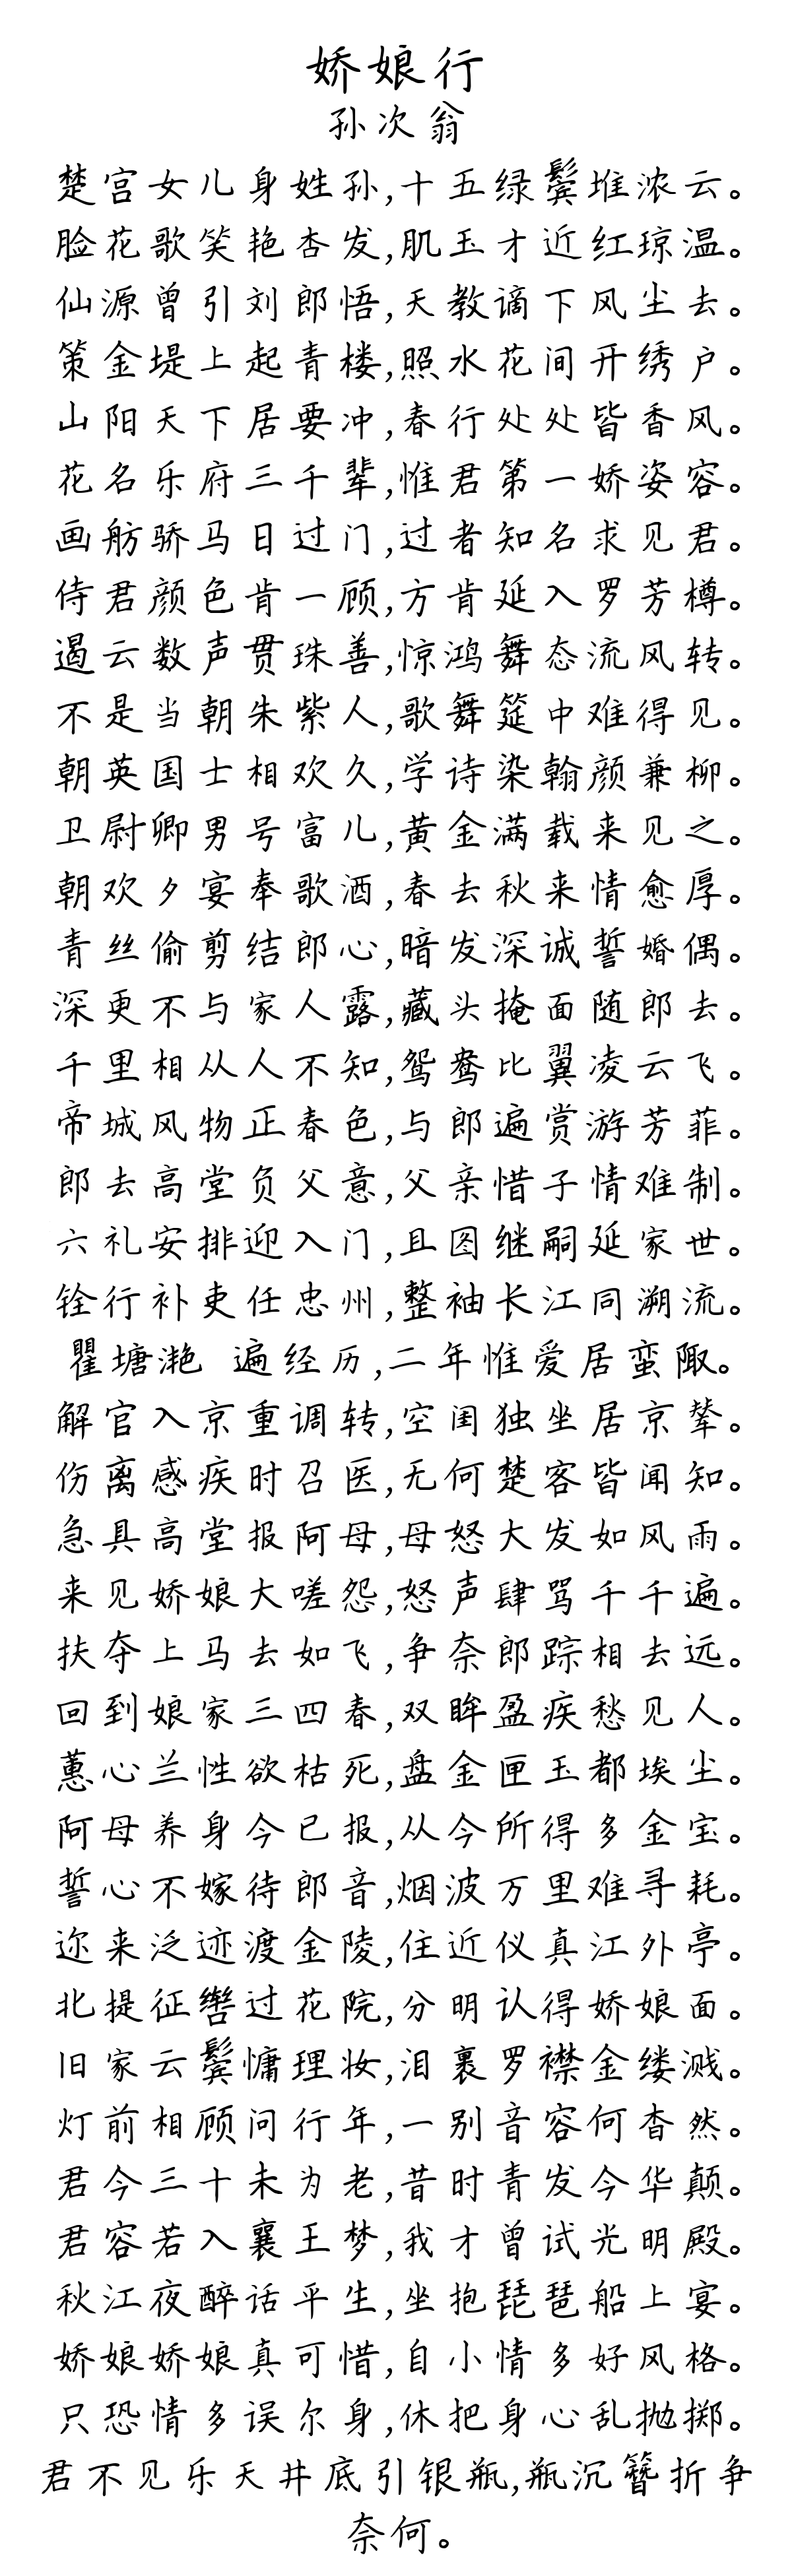 娇娘行
孙次翁
楚宫女儿身姓孙,十五绿鬓堆浓云。
脸花歌笑艳杏发,肌玉才近红琼温。
仙源曾引刘郎悟,天教谪下风尘去。
策金堤上起青楼,照水花间开绣户。
山阳天下居要冲,春行处处皆香风。
花名乐府三千辈,惟君第一娇姿容。
画舫骄马日过门,过者知名求见君。
侍君颜色肯一顾,方肯延入罗芳樽。
遏云数声贯珠善,惊鸿舞态流风转。
不是当朝朱紫人,歌舞筵中难得见。
朝英国士相欢久,学诗染翰颜兼柳。
卫尉卿男号富儿,黄金满载来见之。
朝欢夕宴奉歌酒,春去秋来情愈厚。
青丝偷剪结郎心,暗发深诚誓婚偶。
深更不与家人露,藏头掩面随郎去。
千里相从人不知,鸳鸯比翼凌云飞。
帝城风物正春色,与郎遍赏游芳菲。
郎去高堂负父意,父亲惜子情难制。
六礼安排迎入门,且图继嗣延家世。
铨行补吏任忠州,整袖长江同溯流。
瞿塘滟 遍经历,二年惟爱居蛮陬。
解官入京重调转,空闺独坐居京辇。
伤离感疾时召医,无何楚客皆闻知。
急具高堂报阿母,母怒大发如风雨。
来见娇娘大嗟怨,怒声肆骂千千遍。
扶夺上马去如飞,争奈郎踪相去远。
回到娘家三四春,双眸盈疾愁见人。
蕙心兰性欲枯死,盘金匣玉都埃尘。
阿母养身今已报,从今所得多金宝。
誓心不嫁待郎音,烟波万里难寻耗。
迩来泛迹渡金陵,住近仪真江外亭。
北提征辔过花院,分明认得娇娘面。
旧家云鬓慵理妆,泪裹罗襟金缕溅。
灯前相顾问行年,一别音容何杳然。
君今三十未为老,昔时青发今华颠。
君容若入襄王梦,我才曾试光明殿。
秋江夜醉话平生,坐抱琵琶船上宴。
娇娘娇娘真可惜,自小情多好风格。
只恐情多误尔身,休把身心乱抛掷。
君不见乐天井底引银瓶,瓶沉簪折争
奈何。